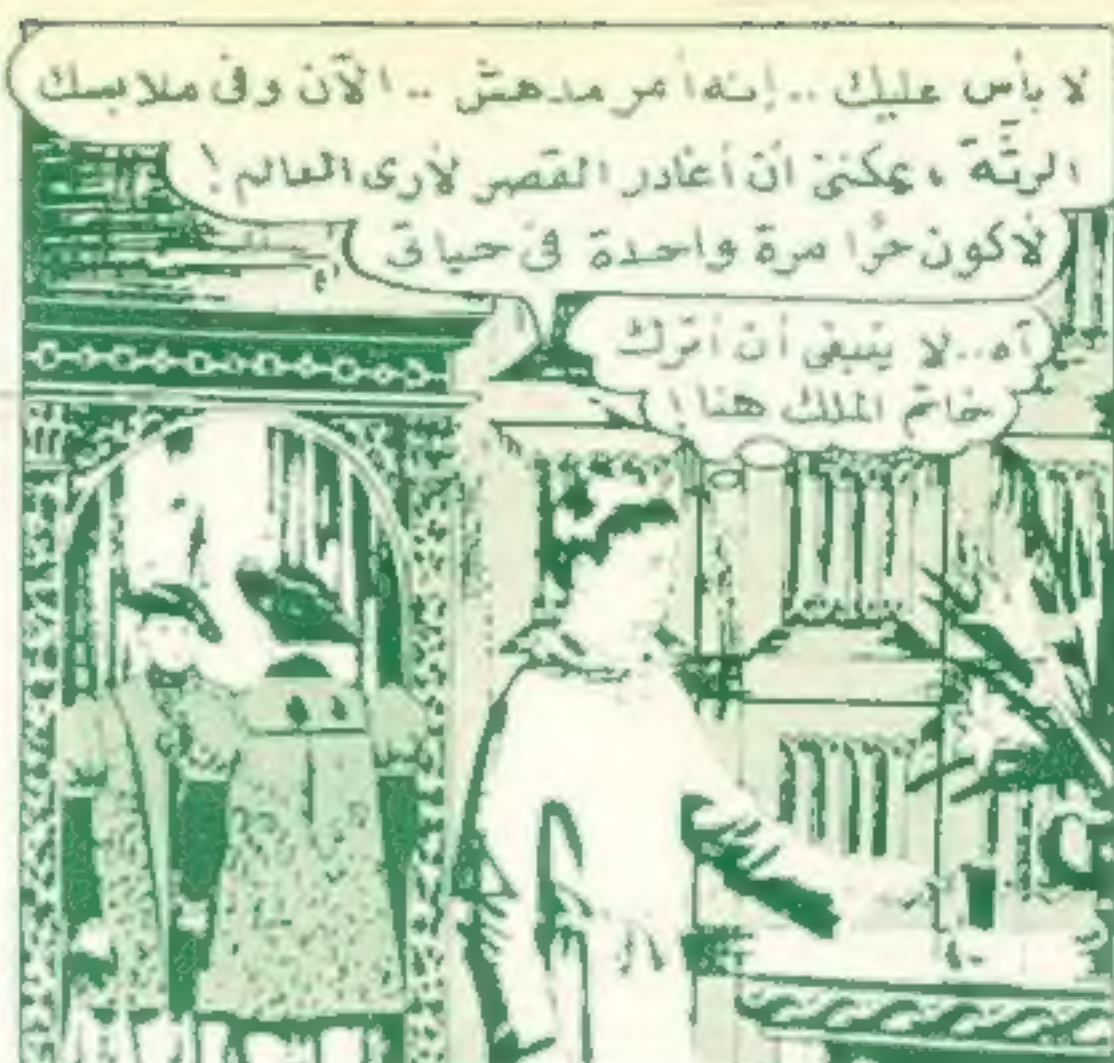 لا بأس عليك .. إنه أمر مدهش .. الآن وفى ملابسك
الرثّة ، يمكننى أن أغادر القصر لأرى العالم !
لأكون حرًّا مرة واحدة فى حياتى
آه .. لا ينبغى أن أترك
خاتم الملك هنا !